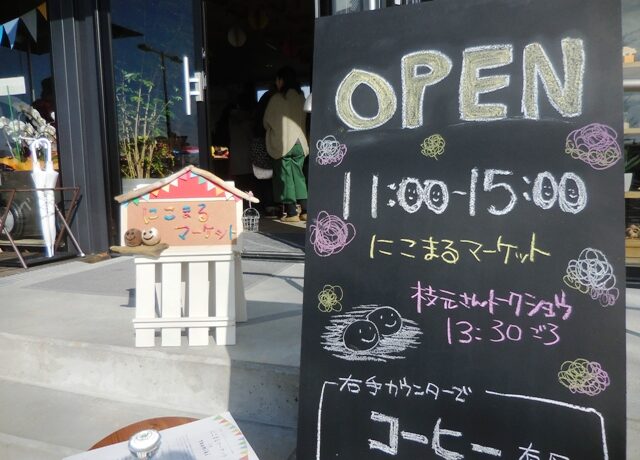 OPEN
11:00-15:00
にこまるマーケット
枝元さんトークショウ
13:30ごろ
右手カウンターで
コーヒー
にこまる
マーケット